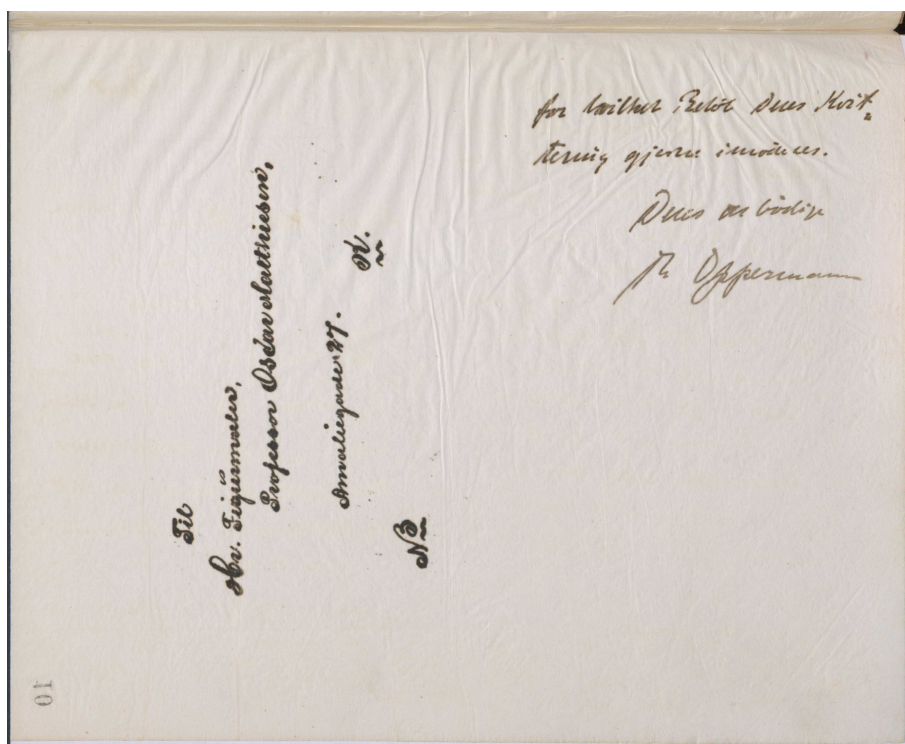 for hvilket Beløb Deres Kvit=
tering gjerne imødeses.
Deres ærbødige
Th Oppermann
Til
Hr. Figurmaler,
Professor Oscar Matthiesen,
Amaliegade 27.
K.
NB
10